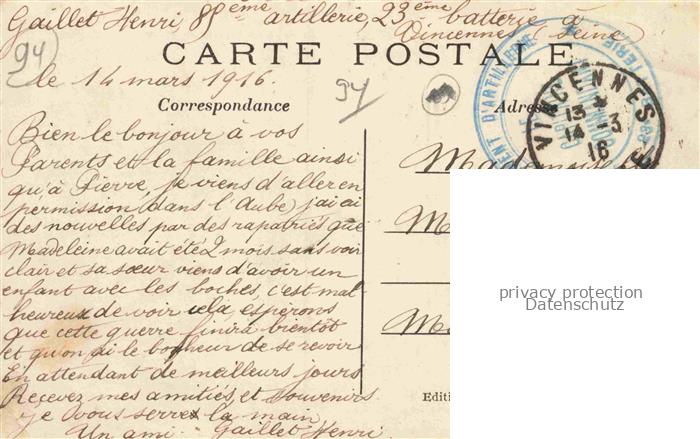 Gaillet Henri, 85ème artillerie, 23ème batterie à
Vincennes (Seine)
CARTE POSTALE
94
le 14 mars 1916.
94
Correspondance
Adresse
Bien le bonjour à vos
Parents et la famille ainsi
qu'à Pierre, je viens d'aller en
permission (dans l'Aube) j'ai ai
des nouvelles par des rapatriés que
Madeleine avait été 2 mois sans voir
clair et sa sœur viens d'avoir un
enfant avec les boches, c'est mal-
heureux de voir cela, esperons
que cette guerre finira bientôt
et qu'on ai le bonheur de se revoir
En attendant de meilleurs jours
Recevez mes amitiés, et souvenirs
je vous serre la main
Un ami Gaillet Henri
VINCENNES
13
14 -3
16
ENT D'ARTILLERIE
Madem
M
M
Editi
privacy protection
Datenschutz